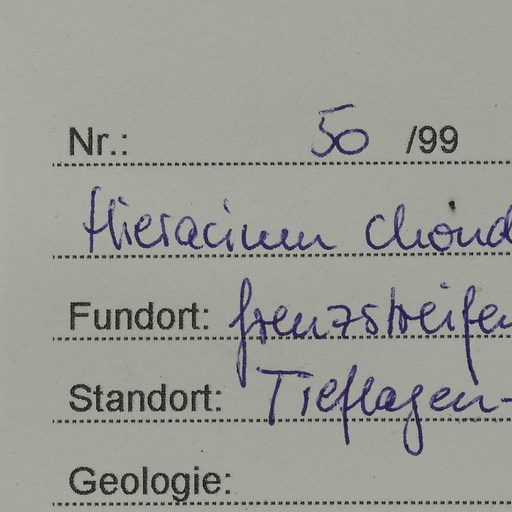 Nr.: 50 /99
Hieracium chond
Fundort: Grenzstreifen
Standort: Tieflagen-
Geologie: